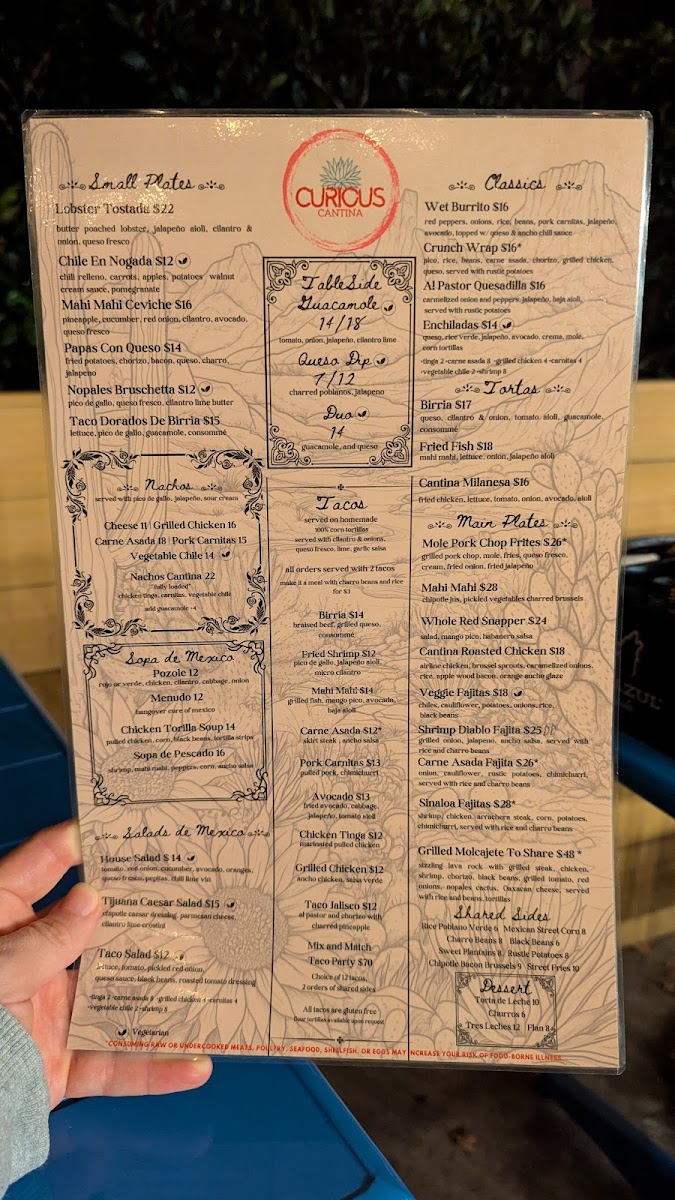 CURIOUS
CANTINA
Small Plates
Lobster Tostada $22
butter poached lobster, jalapeño aioli, cilantro &
onion, queso fresco
Chile En Nogada $12
chili relleno, carrots, apples, potatoes walnut
cream sauce, pomegranate
Mahi Mahi Ceviche $16
pineapple, cucumber, red onion, cilantro, avocado,
queso fresco
Papas Con Queso $14
fried potatoes, chorizo, bacon, queso, charro,
jalapeno
Nopales Bruschetta $12
pico de gallo, queso fresco, cilantro lime butter
Taco Dorados De Birria $15
lettuce, pico de gallo, guacamole, consommé
Nachos
served with pico de gallo, jalapeño, sour cream
Cheese 11 | Grilled Chicken 16
Carne Asada 18 | Pork Carnitas 15
Vegetable Chile 14
Nachos Cantina 22
"fully loaded"
chicken tinga, carnitas, vegetable chile
add guacamole +4
Sopa de Mexico
Pozole 12
rojo or verde, chicken, cilantro, cabbage, onion
Menudo 12
hangover cure of mexico
Chicken Torilla Soup 14
pulled chicken, corn, black beans, tortilla strips
Sopa de Pescado 16
shrimp, mahi mahi, peppers, corn, ancho salsa
Salads de Mexico
House Salad $14
tomato, red onion, cucumber, avocado, oranges,
queso fresco, pepitas, chili lime vin
Tijuana Caesar Salad $15
chipotle caesar dressing, parmesan cheese,
cilantro lime crostini
Taco Salad $12
lettuce, tomato, pickled red onion,
queso sauce, black beans, roasted tomato dressing
-tinga 2 -carne asada 8 -grilled chicken 4 -carnitas 4
-vegetable chile 2 -shrimp 8
Vegetarian
TableSide
Guacamole
14/18
tomato, onion, jalapeño, cilantro lime
Queso Dip
7/12
charred poblanos, jalapeno
Duo
14
guacamole, and queso
Tacos
served on homemade
100% corn tortillas
served with cilantro & onions,
queso fresco, lime, garlic salsa
all orders served with 2 tacos
make it a meal with charro beans and rice
for $3
Birria $14
braised beef, grilled queso,
consommé
Fried Shrimp $12
pico de gallo, jalapeño aioli,
micro cilantro
Mahi Mahi $14
grilled fish, mango pico, avocado,
baja aioli
Carne Asada $12*
skirt steak , ancho salsa
Pork Carnitas $13
pulled pork, chimichurri
Avocado $13
fried avocado, cabbage,
jalapeño, tomato aioli
Chicken Tinga $12
marinated pulled chicken
Grilled Chicken $12
ancho chicken, salsa verde
Taco Jalisco $12
al pastor and chorizo with
charred pineapple
Mix and Match
Taco Party $70
Choice of 12 tacos,
2 orders of shared sides
All tacos are gluten free
flour tortillas available upon request
Classics
Wet Burrito $16
red peppers, onions, rice, beans, pork carnitas, jalapeño,
avocado, topped w/ queso & ancho chili sauce
Crunch Wrap $16*
pico, rice, beans, carne asada, chorizo, grilled chicken,
queso, served with rustic potatoes
Al Pastor Quesadilla $16
carmelized onion and peppers, jalapeño, baja aioli,
served with rustic potatoes
Enchiladas $14
queso, rice verde, jalapeño, avocado, crema, mole,
corn tortillas
-tinga 2 -carne asada 8 -grilled chicken 4 -carnitas 4
-vegetable chile 2 -shrimp 8
Tortas
Birria $17
queso, cilantro & onion, tomato aioli, guacamole,
consommé
Fried Fish $18
mahi mahi, lettuce, onion, jalapeño aioli
Cantina Milanesa $16
fried chicken, lettuce, tomato, onion, avocado, aioli
Main Plates
Mole Pork Chop Frites $26*
grilled pork chop, mole, fries, queso fresco,
cream, fried onion, fried jalapeño
Mahi Mahi $28
chipotle jus, pickled vegetables charred brussels
Whole Red Snapper $24
salad, mango pico, habanero salsa
Cantina Roasted Chicken $18
airline chicken, brussel sprouts, caramelized onions,
rice, apple wood bacon, orange ancho glaze
Veggie Fajitas $18
chiles, cauliflower, potatoes, onions, rice,
black beans
Shrimp Diablo Fajita $25
grilled onion, jalapeno, ancho salsa, served with
rice and charro beans
Carne Asada Fajita $26*
onion, cauliflower, rustic potatoes, chimichurri,
served with rice and charro beans
Sinaloa Fajitas $28*
shrimp, chicken, arrachera steak, corn, potatoes,
chimichurri, served with rice and charro beans
Grilled Molcajete To Share $48 *
sizzling lava rock with grilled steak, chicken,
shrimp, chorizo, black beans, grilled tomato, red
onions, nopales cactus, Oaxacan cheese, served
with rice and beans, tortillas
Shared Sides
Rice Poblano Verde 6 Mexican Street Corn 8
Charro Beans 8 Black Beans 6
Sweet Plantains 8 Rustic Potatoes 8
Chipotle Bacon Brussels 9 Street Fries 10
Dessert
Torta de Leche 10
Churros 6
Tres Leches 12 Flan 8
*CONSUMING RAW OR UNDERCOOKED MEATS, POULTRY, SEAFOOD, SHELLFISH, OR EGGS MAY INCREASE YOUR RISK OF FOOD-BORNE ILLNESS